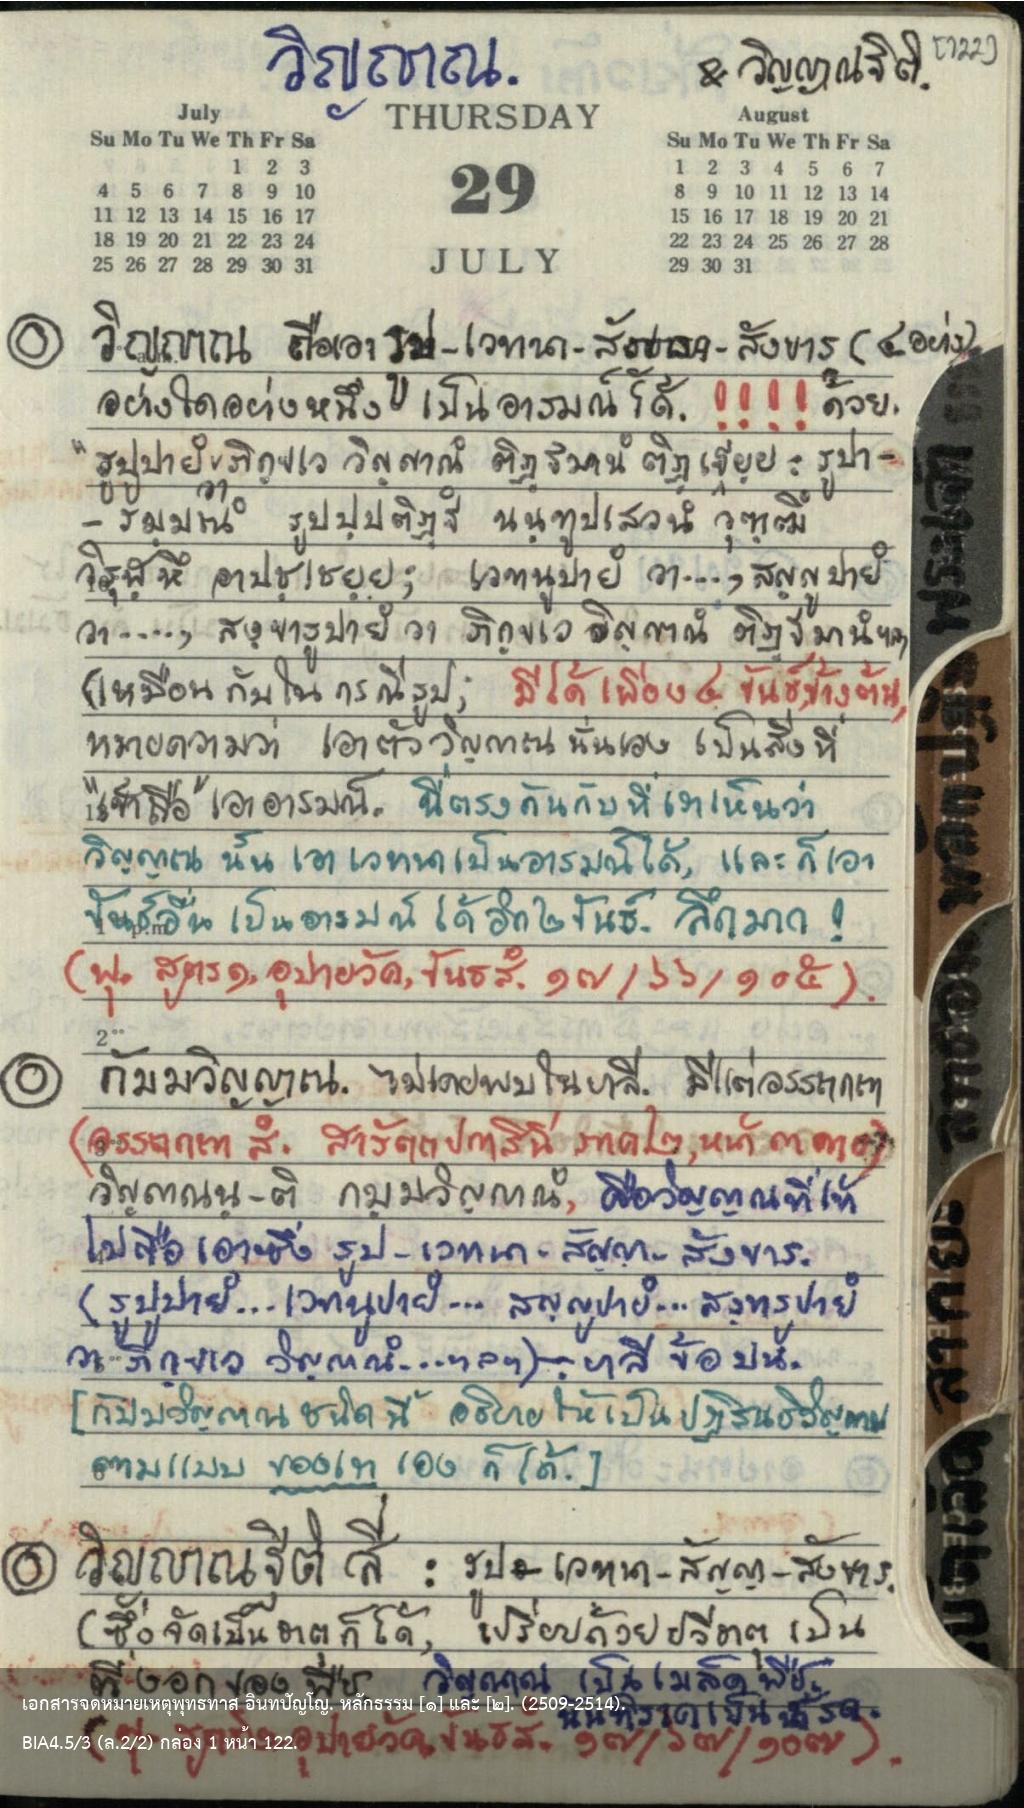 วิญญาณ.
& วิญญาณฐิติ.
[122]
July
THURSDAY
August
Su Mo Tu We Th Fr Sa
1 2 3
4 5 6 7 8 9 10
11 12 13 14 15 16 17
18 19 20 21 22 23 24
25 26 27 28 29 30 31
29
JULY
Su Mo Tu We Th Fr Sa
1 2 3 4 5 6 7
8 9 10 11 12 13 14
15 16 17 18 19 20 21
22 23 24 25 26 27 28
29 30 31
วิญญาณ ถือเอา รูป-เวทนา-สัญญา-สังขาร (๔ อย่าง)
อย่างใดอย่างหนึ่ง เป็นอารมณ์ได้. !!!! ด้วย.
"รูปูปายํ วา ภิกฺขเว วิญฺญาณํ ติฏฺฐมานํ ติฏฺเฐยฺย : รูปา-
-รมฺมณํ รูปปฺปติฏฺฐํ นนฺทูปเสวนํ วุฑฺฒึ
วิรุฬฺหึ อาปชฺเชยฺย; เวทนูปายํ วา...., สญฺญูปายํ
วา ....., สงฺขารูปายํ วา ภิกฺขเว วิญฺญาณํ ติฏฺฐมานํ ฯลฯ
(เหมือนกับใน กรณีรูป; มีได้ เพียง ๔ ขันธ์ข้างต้น,
หมายความว่า เอาตัววิญญาณ นั่นเอง เป็นสิ่งที่
"เข้าถือ" เอาอารมณ์. นี่ตรงกันกับที่เราเห็นว่า
วิญญาณ นั้น เอาเวทนาเป็นอารมณ์ได้, และก็เอา
ขันธ์อื่น เป็นอารมณ์ ได้อีก ๒ ขันธ์. ลึกมาก !
(พุ. สูตร๑. อุปายวัค, ขันธสํ. ๑๗/๖๖/๑๐๕).
2
กัมมวิญญาณ. ไม่เคยพบในบาลี. มีแต่อรรถกถา
(อรรถกถา สํ. สารัตถปกาสินี ภาค ๒, หน้า
วิญฺญาณนฺ-ติ กมฺมวิญฺญาณํ, คือวิญญาณที่เข้า
ไปถือ เอาซึ่ง รูป-เวทนา-สัญญา-สังขาร.
(รูปูปายํ... เวทนูปายํ... สญฺญูปายํ... สงฺขารูปายํ
วา ภิกฺขเว วิญฺญาณํ....ฯลฯ) บาลี ข้อบน.
[กัมมวิญญาณ ชนิดนี้ อธิบายให้เป็นปฏิสนธิวิญญาณ
ตามแบบ ของเขา เอง ก็ได้.]
วิญญาณฐิติ สี่ : รูป-เวทนา-สัญญา-สังขาร.
(ซึ่งจัดเป็นธาตุก็ได้, เปรียบด้วยปฐวีธาตุ เป็น
ที่งอกของพืช วิญญาณ เป็นเมล็ดพืช.
นันทิราคเป็น
(พุ. อุปายวัค, ขันธสํ. ๑๗/๖๗/๑๐๗).
เอกสารจดหมายเหตุพุทธทาส อินทปัญโญ. หลักธรรม [๑] และ [๒]. (2509-2514).
BIA4.5/3 (ล.2/2) กล่อง 1 หน้า 122.